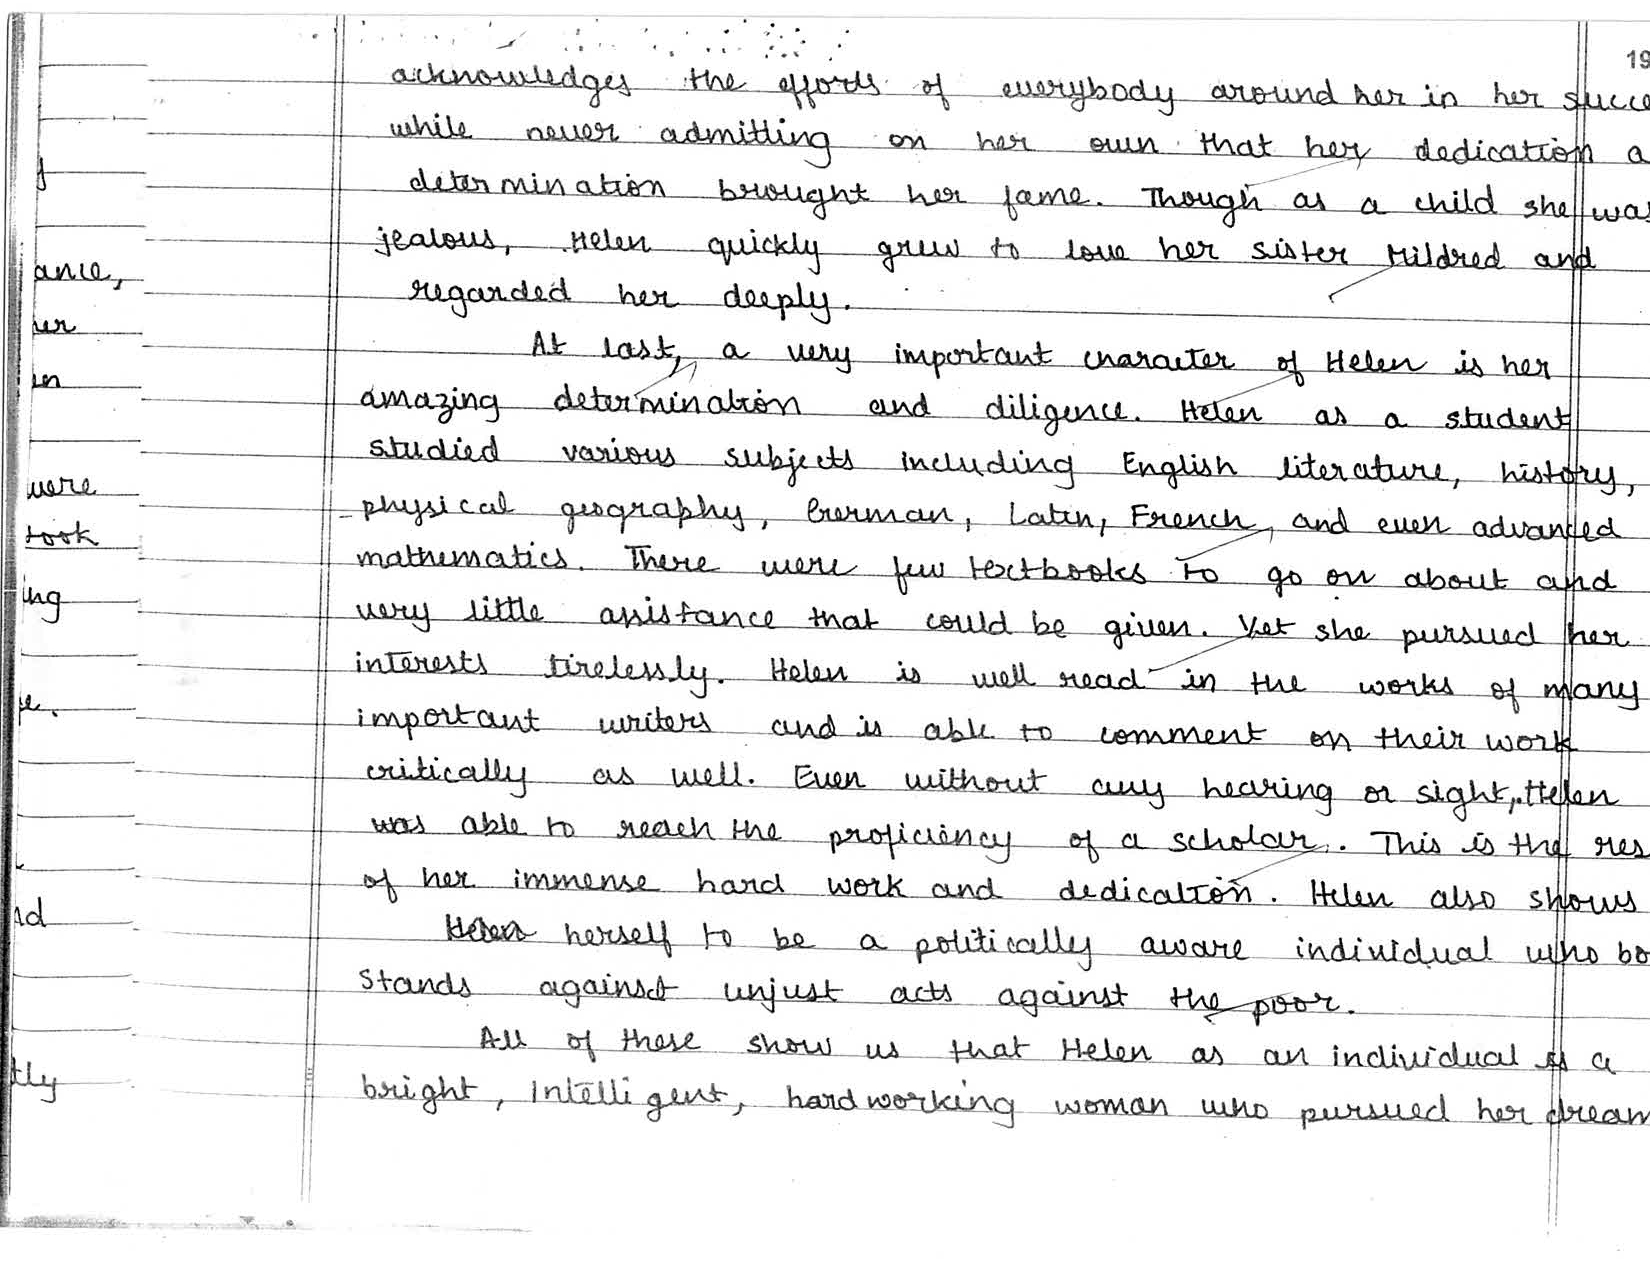 19
acknowledges the efforts of everybody around her in her succe
while never admitting on her own that her dedication a
determination brought her fame. Though as a child she was
jealous, Helen quickly grew to love her sister Mildred and
regarded her deeply.
At last, a very important character of Helen is her
amazing determination and diligence. Helen as a student
studied various subjects including English literature, history,
physical geography, German, Latin, French, and even advanced
mathematics. There were few textbooks to go on about and
very little assistance that could be given. Yet she pursued her
interests tirelessly. Helen is well read in the works of many
important writers and is able to comment on their work
critically as well. Even without any hearing or sight, Helen
was able to reach the proficiency of a scholar. This is the res
of her immense hard work and dedication. Helen also shows
herself to be a politically aware individual who bo
stands against unjust acts against the poor.
All of these show us that Helen as an individual is a
bright, intelligent, hardworking woman who pursued her dream
y
ance,
er
en
were
took
ing
pe.
nd
tly